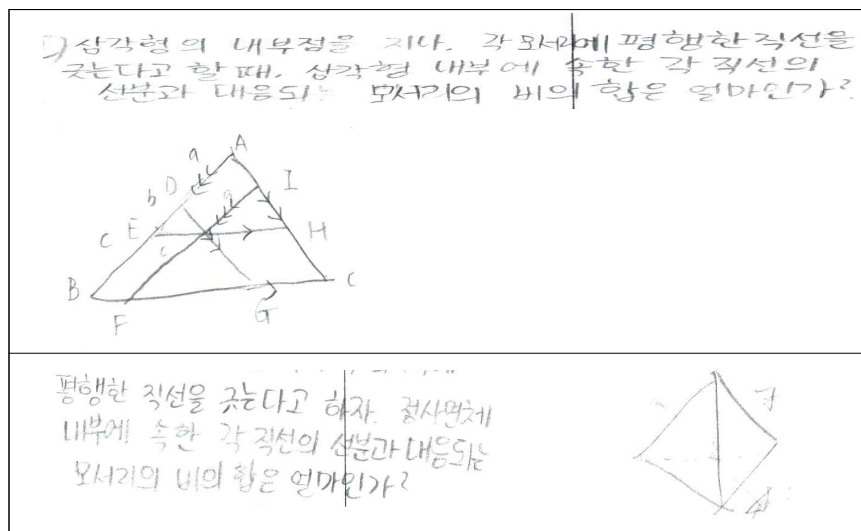 1) 삼각형의 내부점을 지나, 각 모서리에 평행한 직선을
긋는다고 할 때, 삼각형 내부에 속한 각 직선의
선분과 대응되는 모서리의 비의 합은 얼마인가?
A
a
D
I
b
a
C
E
H
c
B
C
F
G
평행한 직선을 긋는다고 하자. 정사면체
내부에 속한 각 직선의 선분과 대응되는
모서리의 비의 합은 얼마인가?